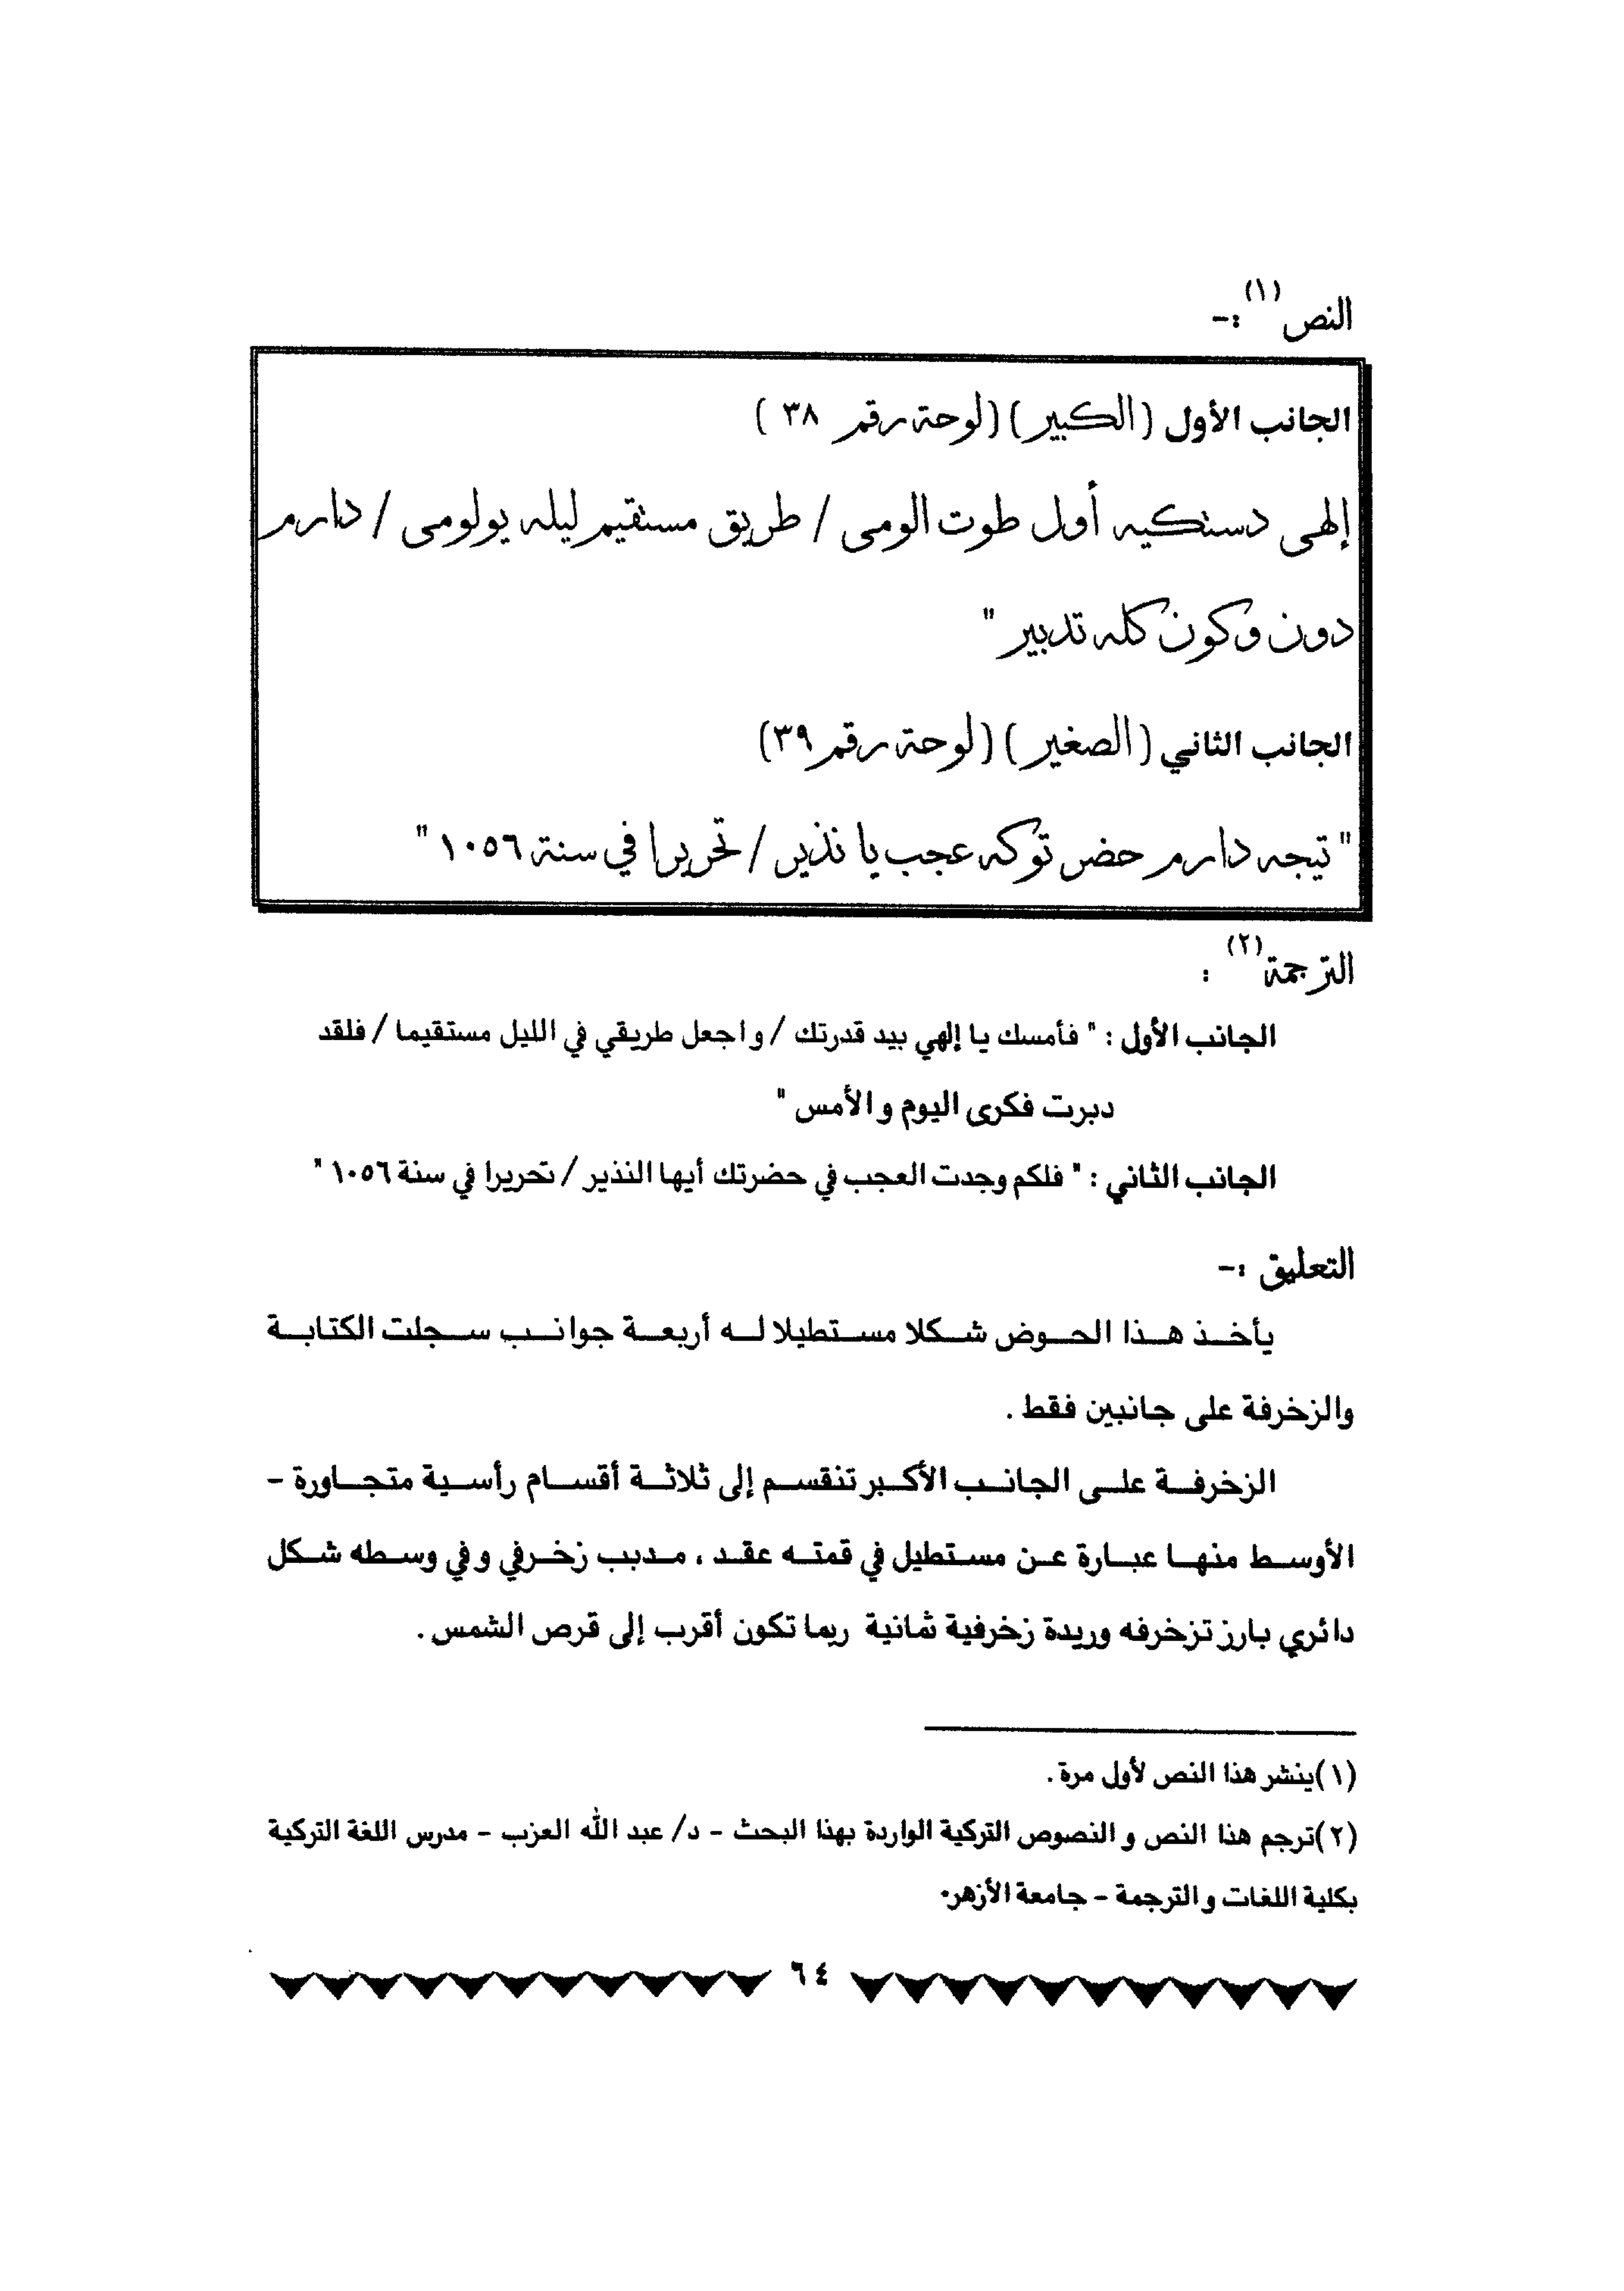 النص (١) :-
الجانب الأول (الكبير) (لوحة رقم ٣٨ )
إلهى دستكيه أول طوت الومى / طريق مستقيم ليله يولومى / دارم
دون وكون كله تدبير "
الجانب الثاني (الصغير) (لوحة رقم ٣٩)
" تيجه دارم حضر توكه عجب يا نذير / تحريرا في سنة ١٠٥٦ "
الترجمة (٢) :
الجانب الأول : " فأمسك يا إلهي بيد قدرتك / واجعل طريقي في الليل مستقيما / فلقد
دبرت فكرى اليوم والأمس "
الجانب الثاني : " فلكم وجدت العجب في حضرتك أيها النذير / تحريرا في سنة ١٠٥٦ "
التعليق :-
يأخذ هذا الحوض شكلا مستطيلا له أربعة جوانب سجلت الكتابة
والزخرفة على جانبين فقط .
الزخرفة على الجانب الأكبر تنقسم إلى ثلاثة أقسام رأسية متجاورة -
الأوسط منها عبارة عن مستطيل في قمته عقد ، مدبب زخرفي وفي وسطه شكل
دائري بارز تزخرفه وريدة زخرفية ثمانية ربما تكون أقرب إلى قرص الشمس .
(١) ينشر هذا النص لأول مرة .
(٢) ترجم هذا النص والنصوص التركية الواردة بهذا البحث - د/ عبد الله العزب - مدرس اللغة التركية
بكلية اللغات والترجمة - جامعة الأزهر.
٦٤